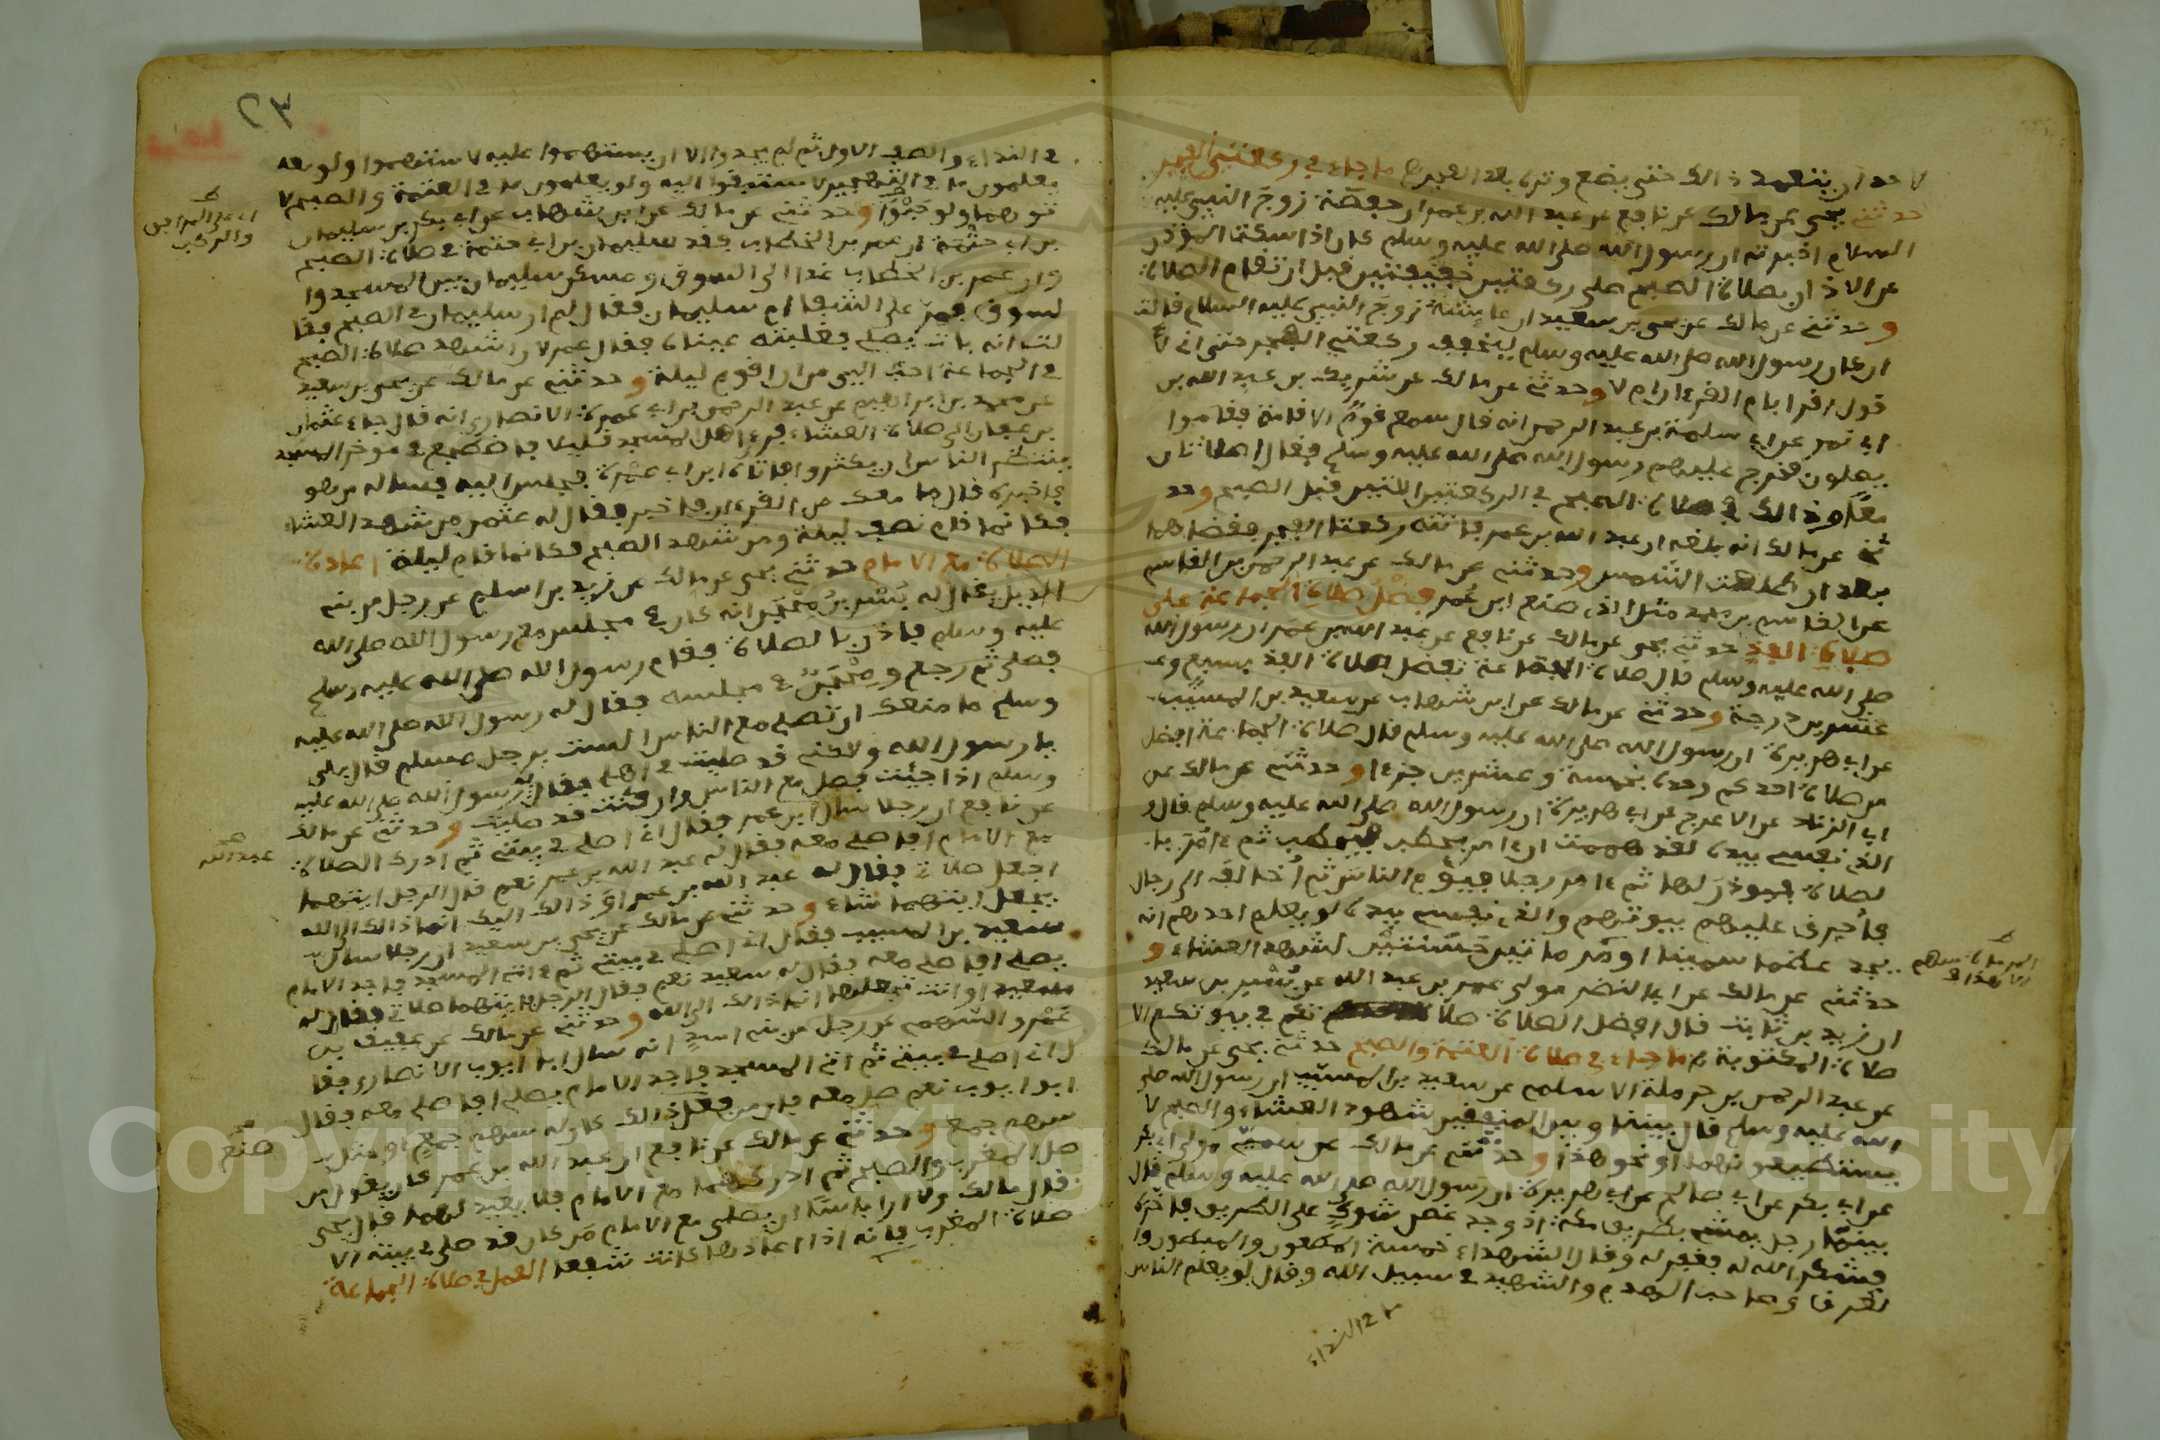 لاحد ان يتعمد ذالك حتى يضع وتره بعد الفجر ما جاء في ركعتي الفجر
حدثني يحيى عن مالك عن نافع عن عبد الله بن عمر ان حفصة زوج النبي عليه
السلام اخبرته ان رسول الله صلى الله عليه وسلم كان اذا سكت المؤذن
عن الاذان بصلاة الصبح صلى ركعتين خفيفتين قبل ان تقام الصلاة
وحدثني عن مالك عن يحيى بن سعيد ان عائشة زوج النبي عليه السلام قالت
ان كان رسول الله صلى الله عليه وسلم ليخفف ركعتي الفجر حتى اني لا
قول اقرا بام القرءان ام لا وحدثني عن مالك عن شريك بن عبد الله بن
ابي نمر عن ابي سلمة بن عبد الرحمن انه قال سمع قوم الاقامة فقاموا
يصلون فخرج عليهم رسول الله صلى الله عليه وسلم فقال اصلاتان
معا وذالك في صلاة الصبح في الركعتين اللتين قبل الصبح وحد
ثني عن مالك انه بلغه ان عبد الله بن عمر فاتته ركعتا الفجر فقضاهما
بعد ان طلعت الشمس وحدثني عن مالك عن عبد الرحمن بن القاسم
عن القاسم بن محمد مثل الذي صنع ابن عمر فضل صلاة الجماعة على
صلاة الفذ حدثني يحيى عن مالك عن نافع عن عبد الله بن عمر ان رسول الله
صلى الله عليه وسلم قال صلاة الجماعة تفضل صلاة الفذ بسبع وعـ
عشرين درجة وحدثني عن مالك عن ابن شهاب عن سعيد بن المسيب
عن ابي هريرة ان رسول الله صلى الله عليه وسلم قال صلاة الجماعة افضل
من صلاة احدكم وحده بخمسة وعشرين جزءا وحدثني عن مالك عن
ابي الزناد عن الاعرج عن ابي هريرة ان رسول الله صلى الله عليه وسلم قال و
الذي نفسي بيده لقد هممت ان ءامر بحطب فيحطب ثم ءامر با
لصلاة فيوذن لها ثم ءامر رجلا فيؤم الناس ثم اخالف الى رجال
فاحرق عليهم بيوتهم والذي نفسي بيده لو يعلم احدهم انه
يجد عظما سمينا او مرماتين حسنتين لشهد العشاء و
حدثني عن مالك عن ابي النضر مولى عمر بن عبد الله عن بسر بن سعيد
ان زيد بن ثابت قال افضل الصلاة صلاتكم في بيوتكم الا
صلاة المكتوبة ما جاء في صلاة العتمة والصبح حدثني يحيى عن مالك
عن عبد الرحمن بن حرملة الاسلمي عن سعيد بن المسيب ان رسول الله صلى
الله عليه وسلم قال بيننا وبين المنفقين شهود العشاء والصبح لا
يستطيعونهما او نحو هذا وحدثني عن مالك عن سمي مولى ابي بكر
عن ابي بكر عن ابي صالح عن ابي هريرة ان رسول الله صلى الله عليه وسلم قال
بينما رجل يمشي بطريق مكة اذ وجد غصن شوك على الطريق فاخره
فشكر الله له فغفر له وقال الشهداء خمسة المطعون والمبطون وا
لغرق وصاحب الهدم والشهيد في سبيل الله وقال لو يعلم الناس
ما في النداء
٢٣
في النداء والصف الاول ثم لم يجدوا الا ان يستهموا عليه لاستهموا ولو
يعلمون ما في التهجير لاستبقوا اليه ولو يعلمون ما في العتمة والصبح لا
توهما ولو حبوا وحدثني عن مالك عن ابن شهاب عن ابي بكر بن سليمان
بن ابي حثمة ان عمر بن الخطاب فقد سليمان بن ابي حثمة في صلاة الصبح
وان عمر بن الخطاب غدا الى السوق ومسكن سليمان بين المسجد وا
لسوق فمر على الشفاء ام سليمان فقال لم ار سليمان في الصبح فقا
لت انه بات يصلي فغلبته عيناه فقال عمر لان اشهد صلاة الصبح
في الجماعة احب الي من ان اقوم ليلة وحدثني عن مالك عن يحيى بن سعيد
عن محمد بن ابراهيم عن عبد الرحمن بن ابي عمرة الانصاري انه قال جاء عثمان
بن عفان الى صلاة العشاء فرءا اهل المسجد قليلا فاضطجع في موخر المسجد
ينتظر الناس ان يكثروا فاتاه ابن ابي عمرة فجلس اليه فساله من هو
فاخبره قال ما معك من القرءان فاخبره فقال له عثمن من شهد العشاء
فكانما قام نصف ليلة ومن شهد الصبح فكانما قام ليلة اعادة
الصلاة مع الامام حدثني يحيى عن مالك عن زيد بن اسلم عن رجل من بني
الديل يقال له بسر بن محجن انه كان في مجلس مع رسول الله صلى الله
عليه وسلم فاذن بالصلاة فقام رسول الله صلى الله عليه وسلم
فصلى ثم رجع ومحجن في مجلسه فقال له رسول الله صلى الله عليه
وسلم ما منعك ان تصلي مع الناس الست برجل مسلم قال بلى
يا رسول الله ولكني قد صليت في اهلي فقال له رسول الله صلى الله عليه
وسلم اذا جئت فصل مع الناس وان كنت قد صليت وحدثني عن مالك
عن نافع ان رجلا سال ابن عمر فقال اني اصلي في بيتي ثم ادرك الصلاة
مع الامام افاصلي معه فقال له عبد الله بن عمر نعم قال الرجل ايتهما
اجعل صلاتي فقال له عبد الله بن عمر او ذالك اليك انما ذالك الى الله
يجعل ايتهما شاء وحدثني عن مالك عن يحيى بن سعيد ان رجلا سال
سعيد بن المسيب فقال اني اصلي في بيتي ثم ءاتي المسجد فاجد الامام
يصلي افاصلي معه فقال له سعيد نعم فقال الرجل فايتهما صلاتي فقال له
سعيد او انت تجعلها انما ذالك الى الله وحدثني عن مالك عن عفيف بن
عمرو السهمي عن رجل من بني اسد انه سال ابا ايوب الانصاري فقا
ل اني اصلي في بيتي ثم ءاتي المسجد فاجد الامام يصلي افاصلي معه فقال
ابو ايوب نعم صل معه فان من فعل ذالك كان له سهم جمع او مثل
سهم جمع وحدثني عن مالك عن نافع ان عبد الله بن عمر كان يقول من
صلى المغرب والصبح ثم ادركهما مع الامام فلا يعيد لهما قال يحيى
قال مالك ولا ارا باسا ان يصلي مع الامام من كان قد صلى في بيته الا
صلاة المغرب فانه اذا اعادها كانت شفعا العمل في صلاة الجماعة
عبد الله
صنع
Copyright © King Saud University